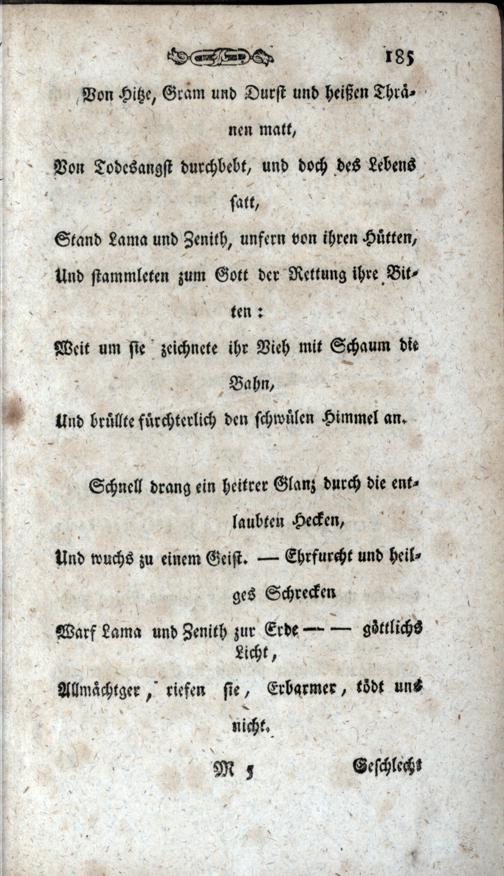 185
Von Hitze, Gram und Durst und heißen Thrä-
nen matt,
Von Todesangst durchbebt, und doch des Lebens
satt,
Stand Lama und Zenith, unfern von ihren Hütten,
Und stammleten zum Gott der Rettung ihre Bit-
ten:
Weit um sie zeichnete ihr Vieh mit Schaum die
Bahn,
Und brüllte fürchterlich den schwülen Himmel an.
Schnell drang ein heitrer Glanz durch die ent-
laubten Hecken,
Und wuchs zu einem Geist. — Ehrfurcht und heil-
ges Schrecken
Warf Lama und Zenith zur Erde — — göttlichs
Licht,
Allmächtger, riefen sie, Erbarmer, tödt uns
nicht.
M 5 Geschlecht